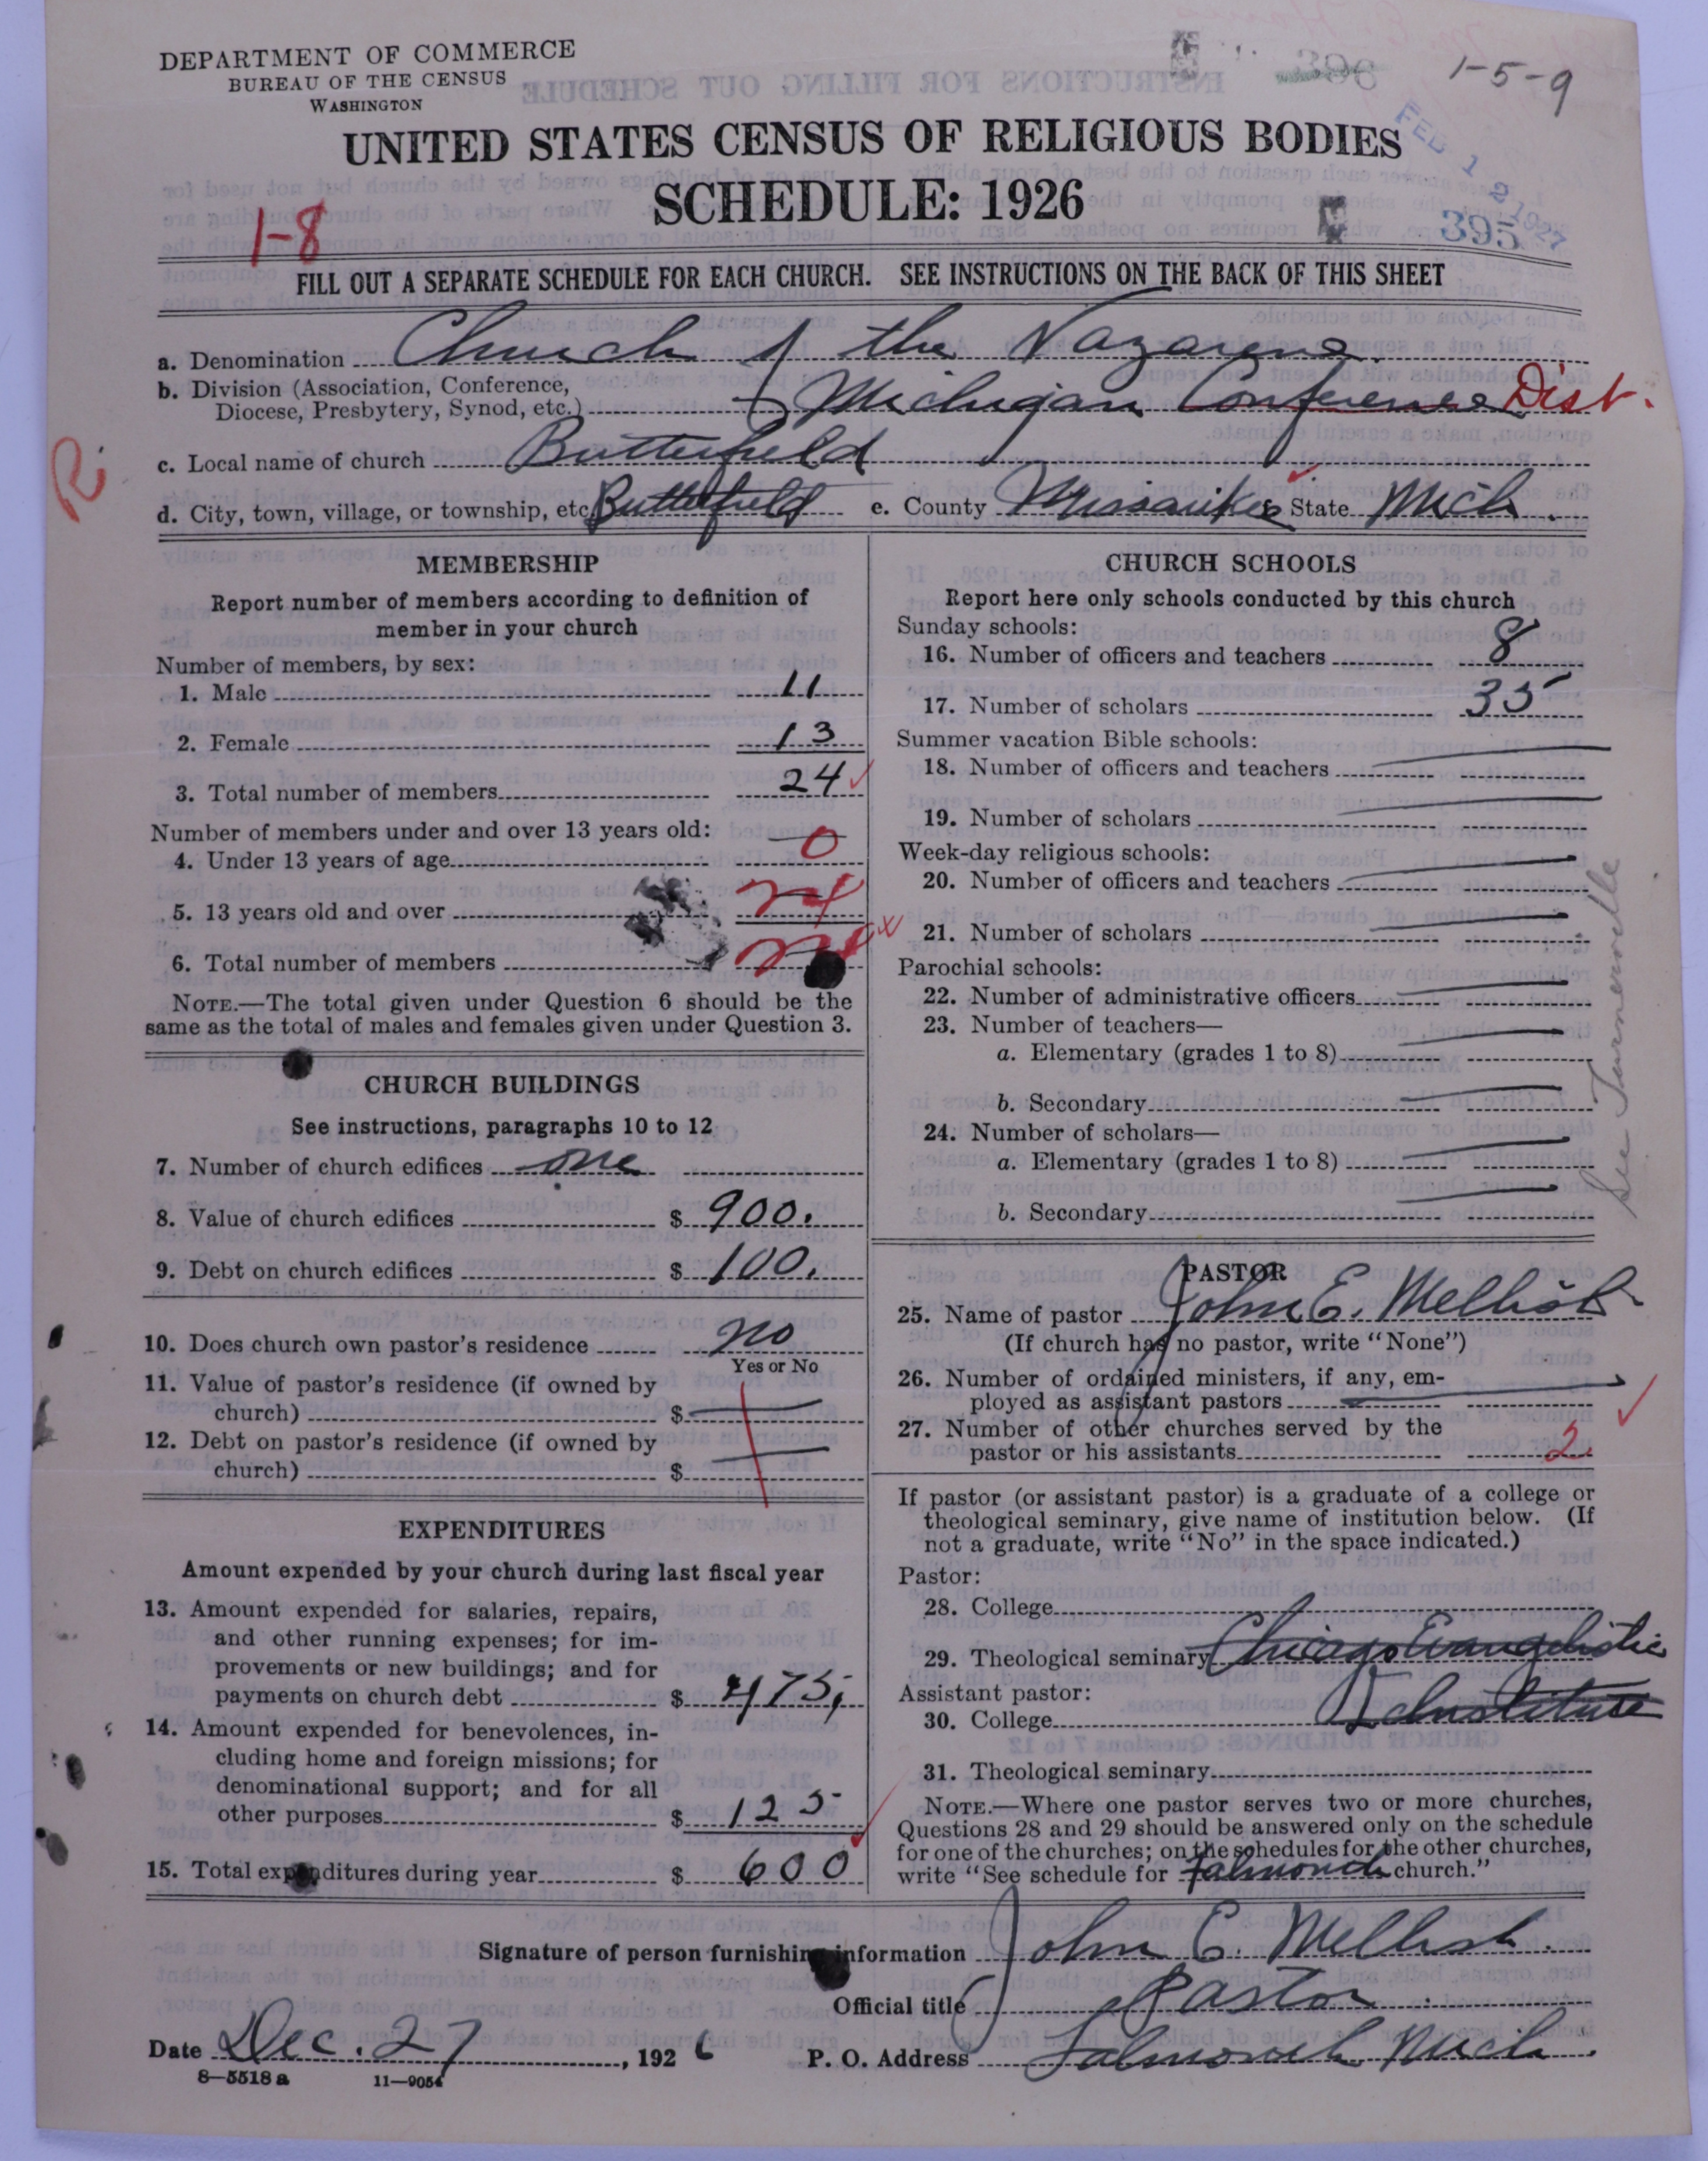 DEPARTMENT OF COMMERCE
BUREAU OF THE CENSUS
WASHINGTON
1-5-9
FEB 12 1927
UNITED STATES CENSUS OF RELIGIOUS BODIES
SCHEDULE: 1926
1-8
395
FILL OUT A SEPARATE SCHEDULE FOR EACH CHURCH. SEE INSTRUCTIONS ON THE BACK OF THIS SHEET
a. Denomination Church of the Nazarene
b. Division (Association, Conference,
Diocese, Presbytery, Synod, etc.) Michigan Conference Dist.
R.
c. Local name of church Butterfield
d. City, town, village, or township, etc. Butterfield e. County Missaukee State Mich.
MEMBERSHIP
Report number of members according to definition of
member in your church
Number of members, by sex:
1. Male 11
2. Female 13
3. Total number of members 24
Number of members under and over 13 years old:
4. Under 13 years of age 0
5. 13 years old and over 24
6. Total number of members 24
NOTE.—The total given under Question 6 should be the
same as the total of males and females given under Question 3.
CHURCH BUILDINGS
See instructions, paragraphs 10 to 12
7. Number of church edifices one
8. Value of church edifices $ 900.
9. Debt on church edifices $ 100.
10. Does church own pastor's residence no
Yes or No
11. Value of pastor's residence (if owned by
church) $
12. Debt on pastor's residence (if owned by
church) $
EXPENDITURES
Amount expended by your church during last fiscal year
13. Amount expended for salaries, repairs,
and other running expenses; for im-
provements or new buildings; and for
payments on church debt $ 475,
14. Amount expended for benevolences, in-
cluding home and foreign missions; for
denominational support; and for all
other purposes $ 125
15. Total expenditures during year $ 600
CHURCH SCHOOLS
Report here only schools conducted by this church
Sunday schools:
16. Number of officers and teachers 8
17. Number of scholars 35
Summer vacation Bible schools:
18. Number of officers and teachers
19. Number of scholars
Week-day religious schools:
20. Number of officers and teachers
21. Number of scholars
Parochial schools:
22. Number of administrative officers
23. Number of teachers—
a. Elementary (grades 1 to 8)
b. Secondary
24. Number of scholars—
a. Elementary (grades 1 to 8)
b. Secondary
See Turnerville
PASTOR
25. Name of pastor John E. Mellish
(If church has no pastor, write "None")
26. Number of ordained ministers, if any, em-
ployed as assistant pastors
27. Number of other churches served by the
pastor or his assistants 2.
If pastor (or assistant pastor) is a graduate of a college or
theological seminary, give name of institution below. (If
not a graduate, write "No" in the space indicated.)
Pastor:
28. College
29. Theological seminary Chicago Evangelistic
Assistant pastor:
30. College Institute
31. Theological seminary
NOTE.—Where one pastor serves two or more churches,
Questions 28 and 29 should be answered only on the schedule
for one of the churches; on the schedules for the other churches,
write "See schedule for Falmouth church."
Signature of person furnishing information John E. Mellish.
Official title Pastor
Date Dec. 27, 1926 P. O. Address Falmouth Mich.
8—5518 a 11—9054